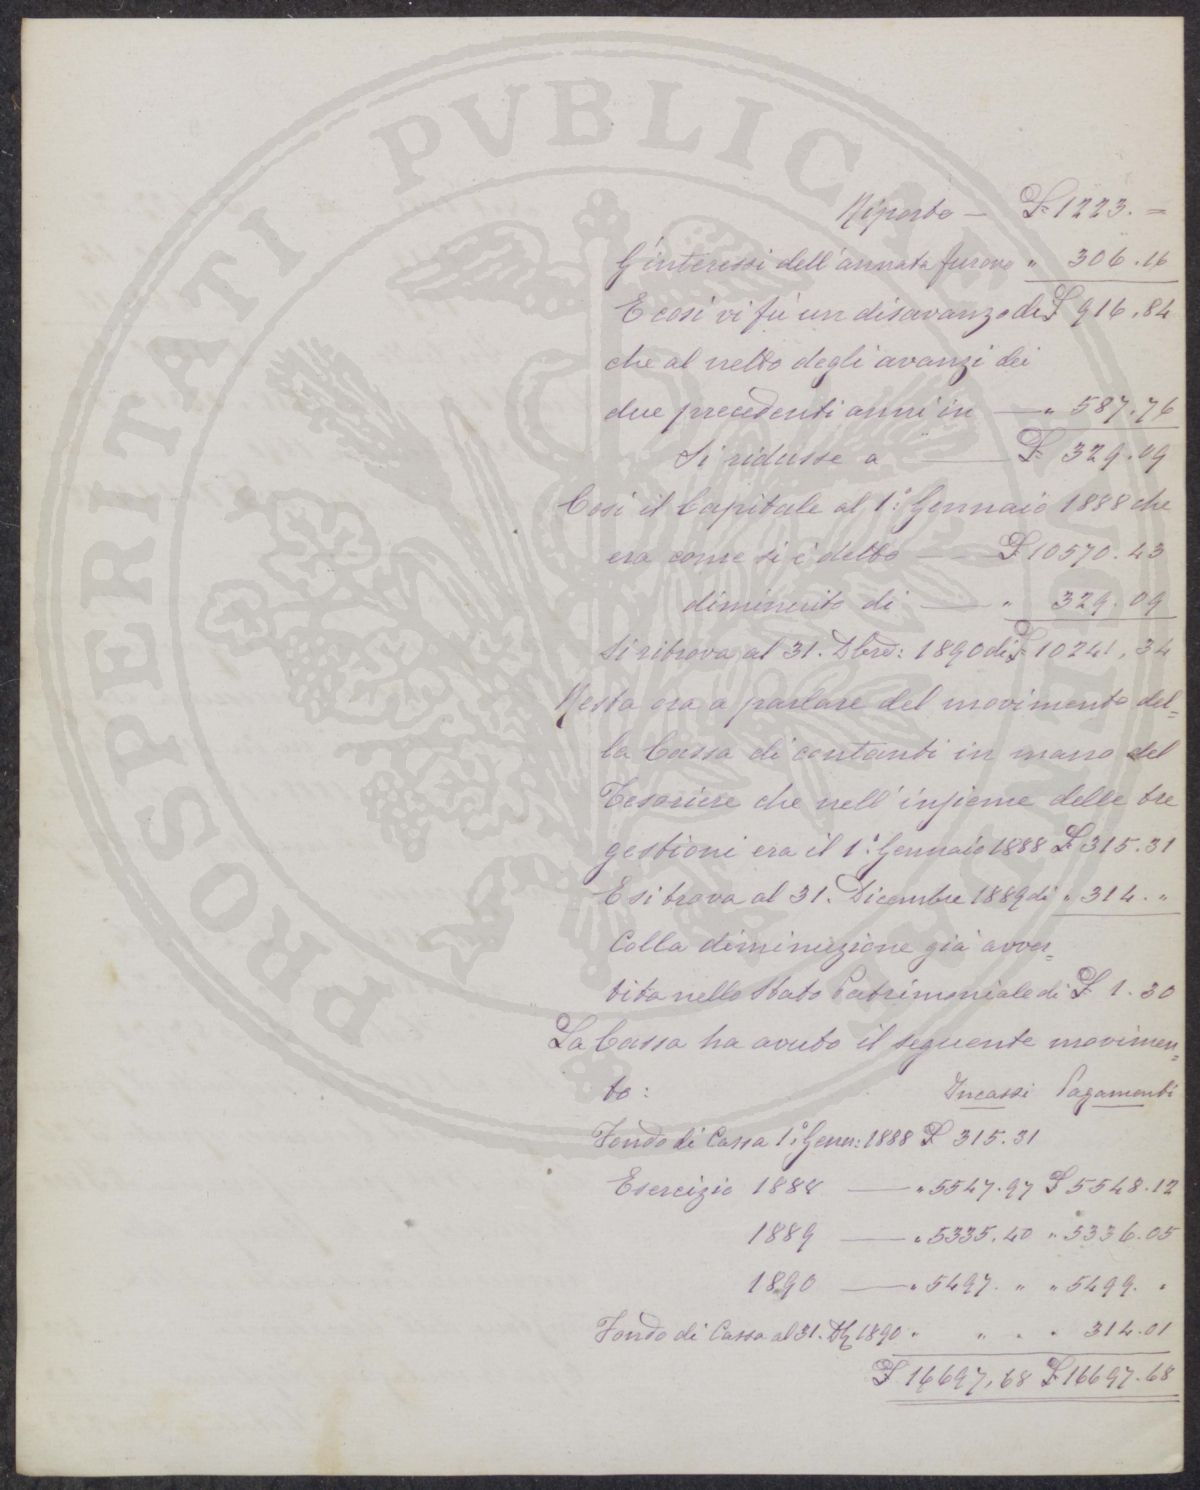 PROSPERITATI PVBLICAE
Riporto — £ 1223. =
G'interessi dell'annata furono " 306.16
E così vi fù un disavanzo di £ 916,84
che al netto degli avanzi dei
due precedenti anni in — " 587.76
Si ridusse a — £ 329.09
Così il Capitale al 1.° Gennaio 1888 che
era come si è detto — £ 10570.43
diminuito di — " 329.09
Si ritrova al 31. Dbre: 1890 di £ 10241,34
Resta ora a parlare del movimento del=
la Cassa di contanti in mano del
Tesoriere che nell'insieme delle tre
gestioni era il 1.° Gennaio 1888 £ 315.31
E si trova al 31. Dicembre 1889 di " 314. "
Colla diminuzione già avver=
tita nello Stato Patrimoniale di £ 1.30
La Cassa ha avuto il seguente movimen=
to: Incassi Pagamenti
Fondo di Cassa 1.° Genn: 1888 £ 315.31
Esercizio 1888 — " 5547.97 £ 5548.12
1889 — " 5335.40 " 5336.05
1890 — " 5497. " " 5499. "
Fondo di Cassa al 31. 1890 " " " " 314.01
£ 16697,68 £ 16697.68